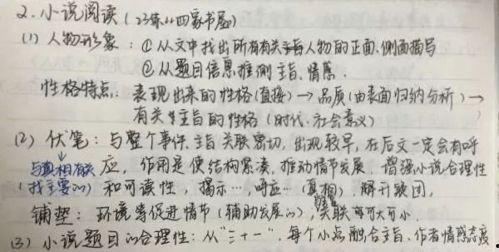 2. 小说阅读(23练11四寄书屋)
(1) 人物形象:①从文中找出所有有关人物的正面.侧面描写
②从题目信息推测主旨、情感.
性格特点:表现出来的性格(直接)→品质(由表面归纳分析)→
有关主旨的性格(时代.社会意义)
(2) 伏笔:与整个事件.主旨关联密切,出现较早,在后文一定会有呼
与真相相关 应,作用是使结构紧凑,推动情节发展,增强小说合理性
(找主要的) 和可读性,揭示…,呼应…(真相),解开谜团,
铺垫:环境等促进情节(辅助发展的),关联可大可小.
(3) 小说题目的合理性:从“三+一”,每个小点融合主旨、作者情感态度